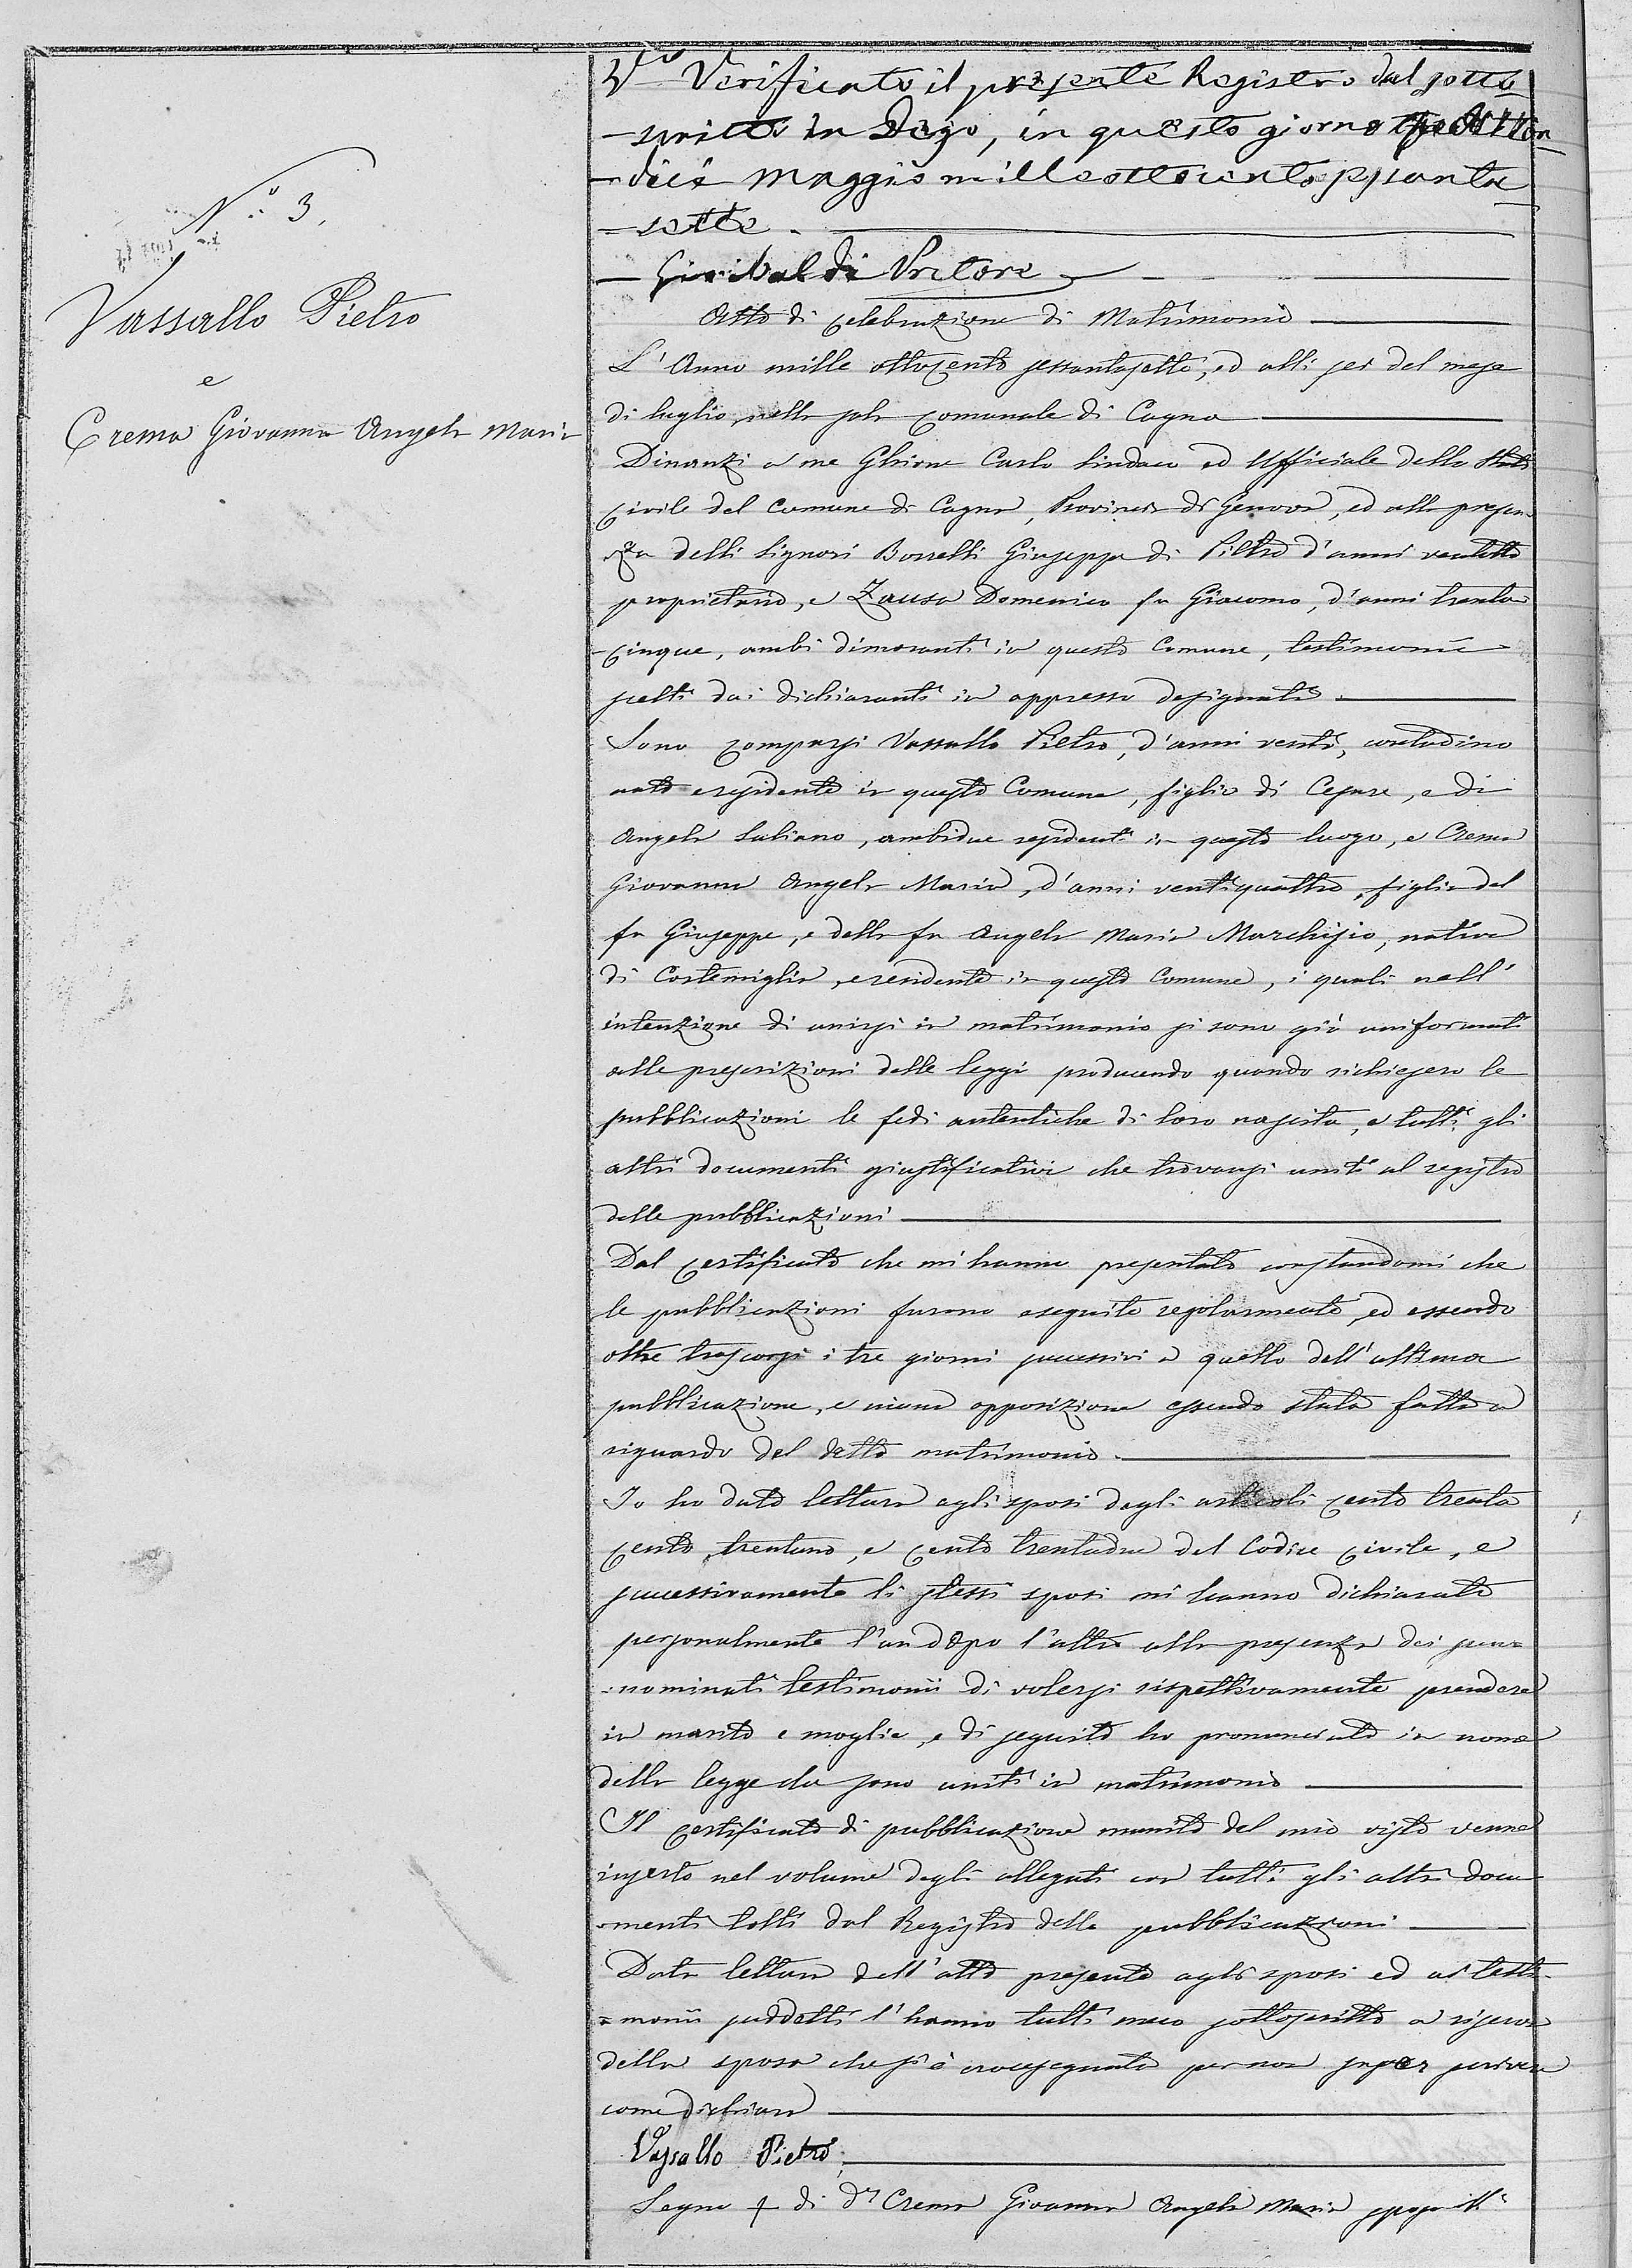 N.º 3.
Vassallo Pietro
e
Crema Giovanna Angela Maria
Vº Verificato il presente Registro dal sotto
-scritto in Dego, in questo giorno
-dici Maggio mille ottocento sessanta
-sette.
Giribaldi Pretore
Atto di celebrazione di Matrimonio
L'Anno mille ottocento sessantasette, ed alli sei del mese
di luglio nella sala comunale di Cagna
Dinanzi a me Ghione Carlo Sindaco ed Ufficiale dello Stato
Civile del Comune di Cagna, Provincia di Genova, ed alla presen-
-za delli Signori Borrelli Giuseppe di Pietro d'anni ventotto
proprietario, e Zausa Domenico fu Giacomo, d'anni trenta
-cinque, ambi dimoranti in questo Comune, testimonii
scelti dai dichiaranti in appresso designati.
Sono comparsi Vassallo Pietro, d'anni venti, contadino
nato e residente in questo Comune, figlio di Cesare, e di
Angela Suliano, ambidue residenti in questo luogo, e Crema
Giovanna Angela Maria, d'anni ventiquattro, figlia del
fu Giuseppe, e della fu Angela Maria Marchisio, nativa
di Cortemiglia, e residente in questo Comune, i quali nell'
intenzione di unirsi in matrimonio si sono già uniformati
alle prescrizioni delle leggi producendo quando richiesero le
pubblicazioni le fedi autentiche di loro nascita, e tutti gli
altri documenti giustificativi che trovansi uniti al registro
delle pubblicazioni
Dal certificato che mi hanno presentato constandomi che
le pubblicazioni furono eseguite regolarmente, ed essendo
oltre trascorsi i tre giorni successivi a quello dell'ultima
pubblicazione, e niuna opposizione essendo stata fatta a
riguardo del detto matrimonio.
Io ho dato lettura agli sposi degli articoli cento trenta
cento trentuno, e cento trentadue del Codice civile, e
successivamente li stessi sposi mi hanno dichiarato
personalmente l'un dopo l'altro alla presenza dei sunn-
-nominati testimonii di volersi rispettivamente prendere
in marito e moglie, e di seguito ho pronunciato in nome
della legge che sono uniti in matrimonio
Il certificato di pubblicazione munito del mio visto venne
inserto nel volume degli allegati con tutti gli altri docu
-menti tolti dal Registro delle pubblicazioni
Data lettura dell'atto presente agli sposi ed ai testi-
-monii suddetti l'hanno tutti meco sottoscritto a riserva
della sposa che si è crocesegnata per non saper scrivere
come dichiara
Vassallo Pietro
Segno + di dª Crema Giovanna Angela Maria sposa